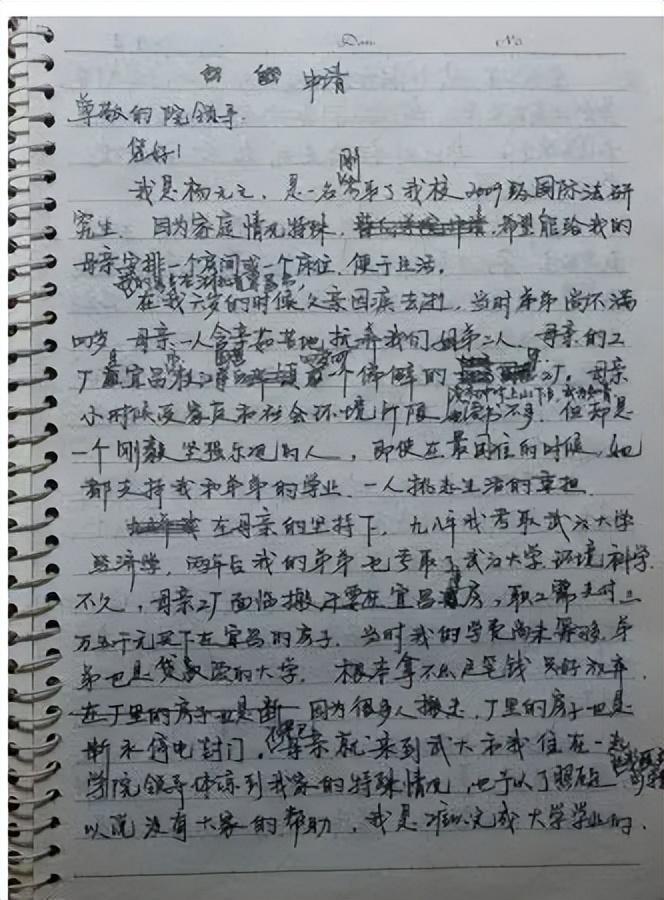 Date No
申请
尊敬的院领导:
您好!
刚
我是杨元元, 是一名考取了我校2009级国际法研
究生. 因为家庭情况特殊, 希望能给我的
母亲安排一个房间或一个床位, 便于生活.
在我六岁的时候父亲因病去逝, 当时弟弟尚不满
四岁. 母亲一人含辛如苦地抚养我们姐弟二人. 母亲的工
厂是宜昌枝江 一个偏僻的 工厂, 母亲
小时候受家庭和社会环境所限 读书不多. 但却是
一个刚毅坚强乐观的人, 即使在最困住的时候, 她
都支持我和弟弟的学业. 一人挑起生活的重担.
在母亲的坚持下, 九八年我考取武汉大学
经济学, 两年后我的弟弟也考取了武汉大学环境科学.
不久, 母亲工厂面临搬迁要在宜昌 房, 职工需支付三
万五千元买下在宜昌的房子. 当时我的学费尚未筹够, 弟
弟也是贷款读的大学. 根本拿不出这笔钱只好放弃.
在厂里的房子也是断 因为很多人搬走, 厂里的房子也是
断水停电封门, 母亲就来到武大和我住在一起
学院领导体谅到我家的特殊情况, 也予以了照顾
以说没有大家的帮助, 我是难以完成大学学业的.